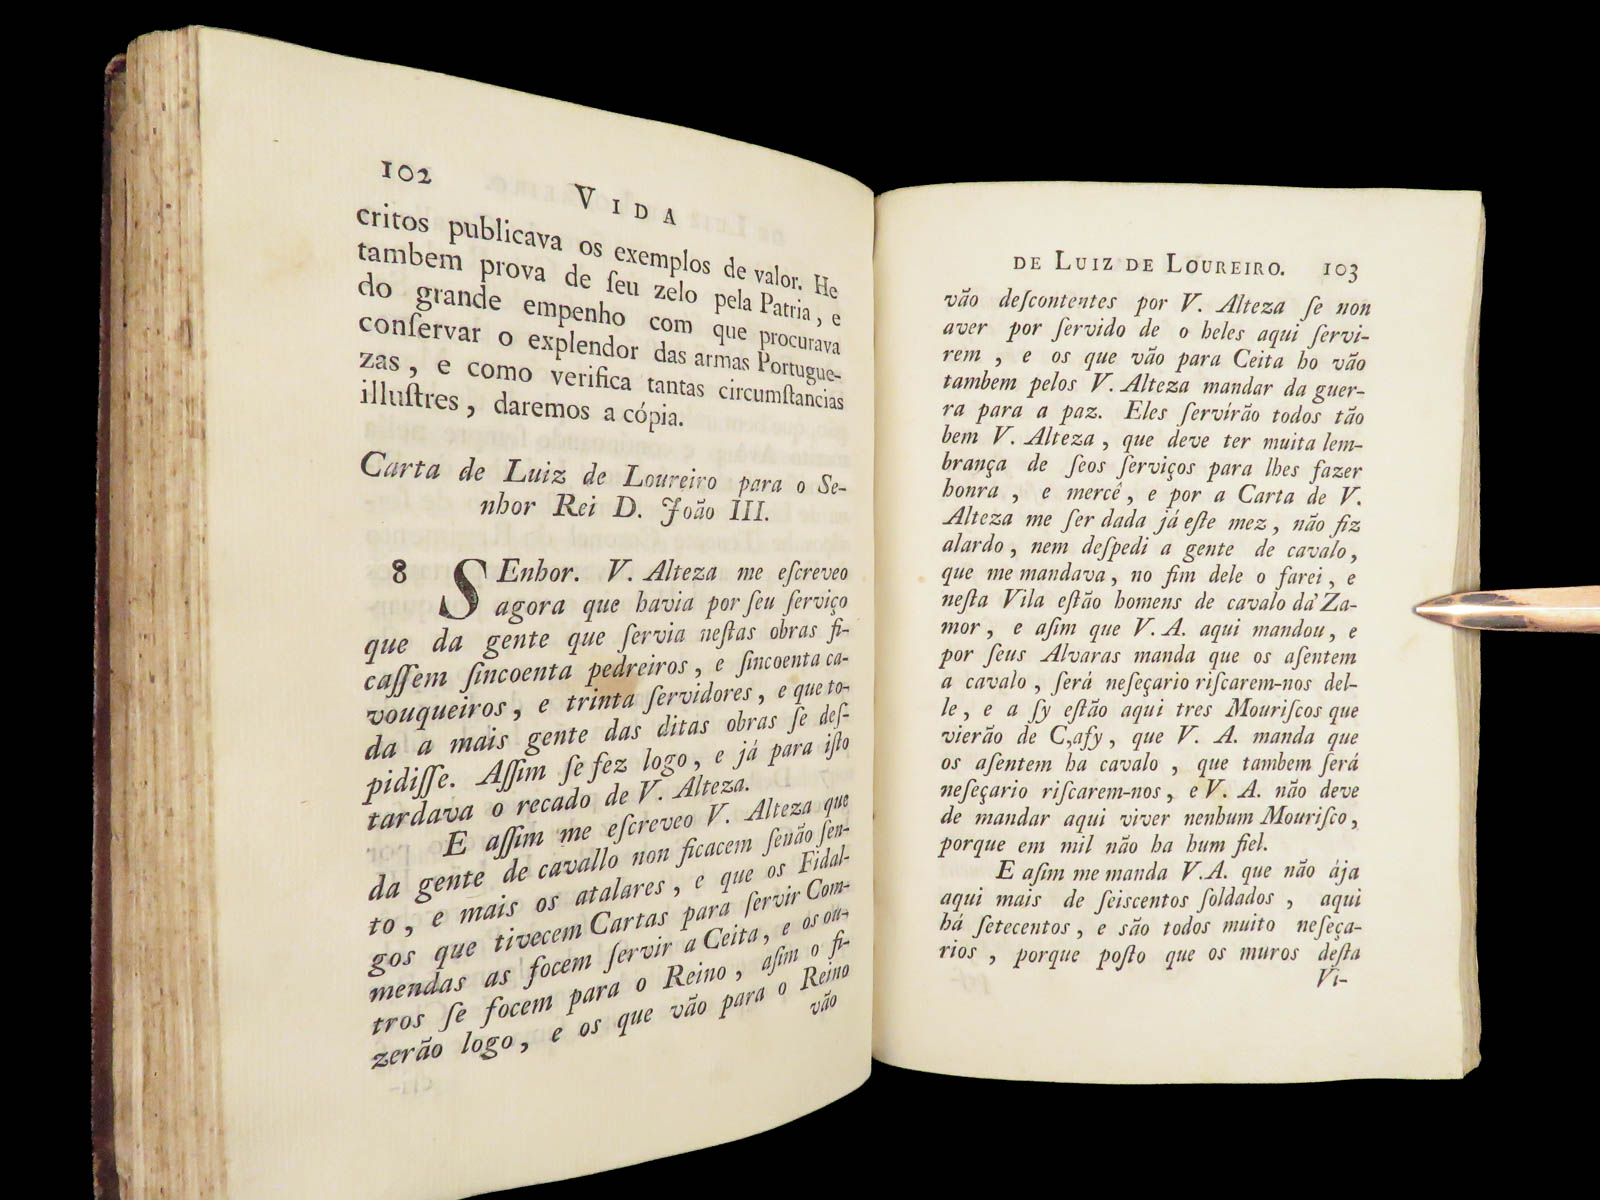 102
VIDA
critos publicava os exemplos de valor. He
tambem prova de ſeu zelo pela Patria, e
do grande empenho com que procurava
conſervar o explendor das armas Portugue-
zas, e como verifica tantas circumſtancias
illuſtres, daremos a cópia.
Carta de Luiz de Loureiro para o Se-
nhor Rei D. João III.
8 SEnhor. V. Alteza me eſcreveo
agora que havia por ſeu ſerviço
que da gente que ſervia neſtas obras fi-
caſſem ſincoenta pedreiros, e ſincoenta ca-
vouqueiros, e trinta ſervidores, e que to-
da a mais gente das ditas obras ſe deſ-
pidiſſe. Aſſim ſe fez logo, e já para iſto
tardava o recado de V. Alteza.
E aſſim me eſcreveo V. Alteza que
da gente de cavallo non ficacem ſenão ſen-
to, e mais os atalares, e que os Fidal-
gos que tivecem Cartas para ſervir Com-
mendas as focem ſervir a Ceita, e os ou-
tros ſe focem para o Reino, aſim o fi-
zerão logo, e os que vão para o Reino
vão
DE LUIZ DE LOUREIRO. 103
vão deſcontentes por V. Alteza ſe non
aver por ſervido de o heles aqui ſervi-
rem, e os que vão para Ceita ho vão
tambem pelos V. Alteza mandar da guer-
ra para a paz. Eles ſervirão todos tão
bem V. Alteza, que deve ter muita lem-
brança de ſeos ſerviços para lhes fazer
honra, e mercê, e por a Carta de V.
Alteza me ſer dada já eſte mez, não fiz
alardo, nem deſpedi a gente de cavalo,
que me mandava, no fim dele o farei, e
neſta Vila eſtão homens de cavalo dà Za-
mor, e aſim que V. A. aqui mandou, e
por ſeus Alvaras manda que os aſentem
a cavalo, ſerá neſeçario riſcarem-nos del-
le, e a ſy eſtão aqui tres Mouriſcos que
vierão de C,afy, que V. A. manda que
os aſentem ha cavalo, que tambem ſerá
neſeçario riſcarem-nos, e V. A. não deve
de mandar aqui viver nenhum Mouriſco,
porque em mil não ha hum fiel.
E aſim me manda V. A. que não ája
aqui mais de ſeiscentos ſoldados, aqui
há ſetecentos, e são todos muito neſeça-
rios, porque poſto que os muros deſta
Vi-